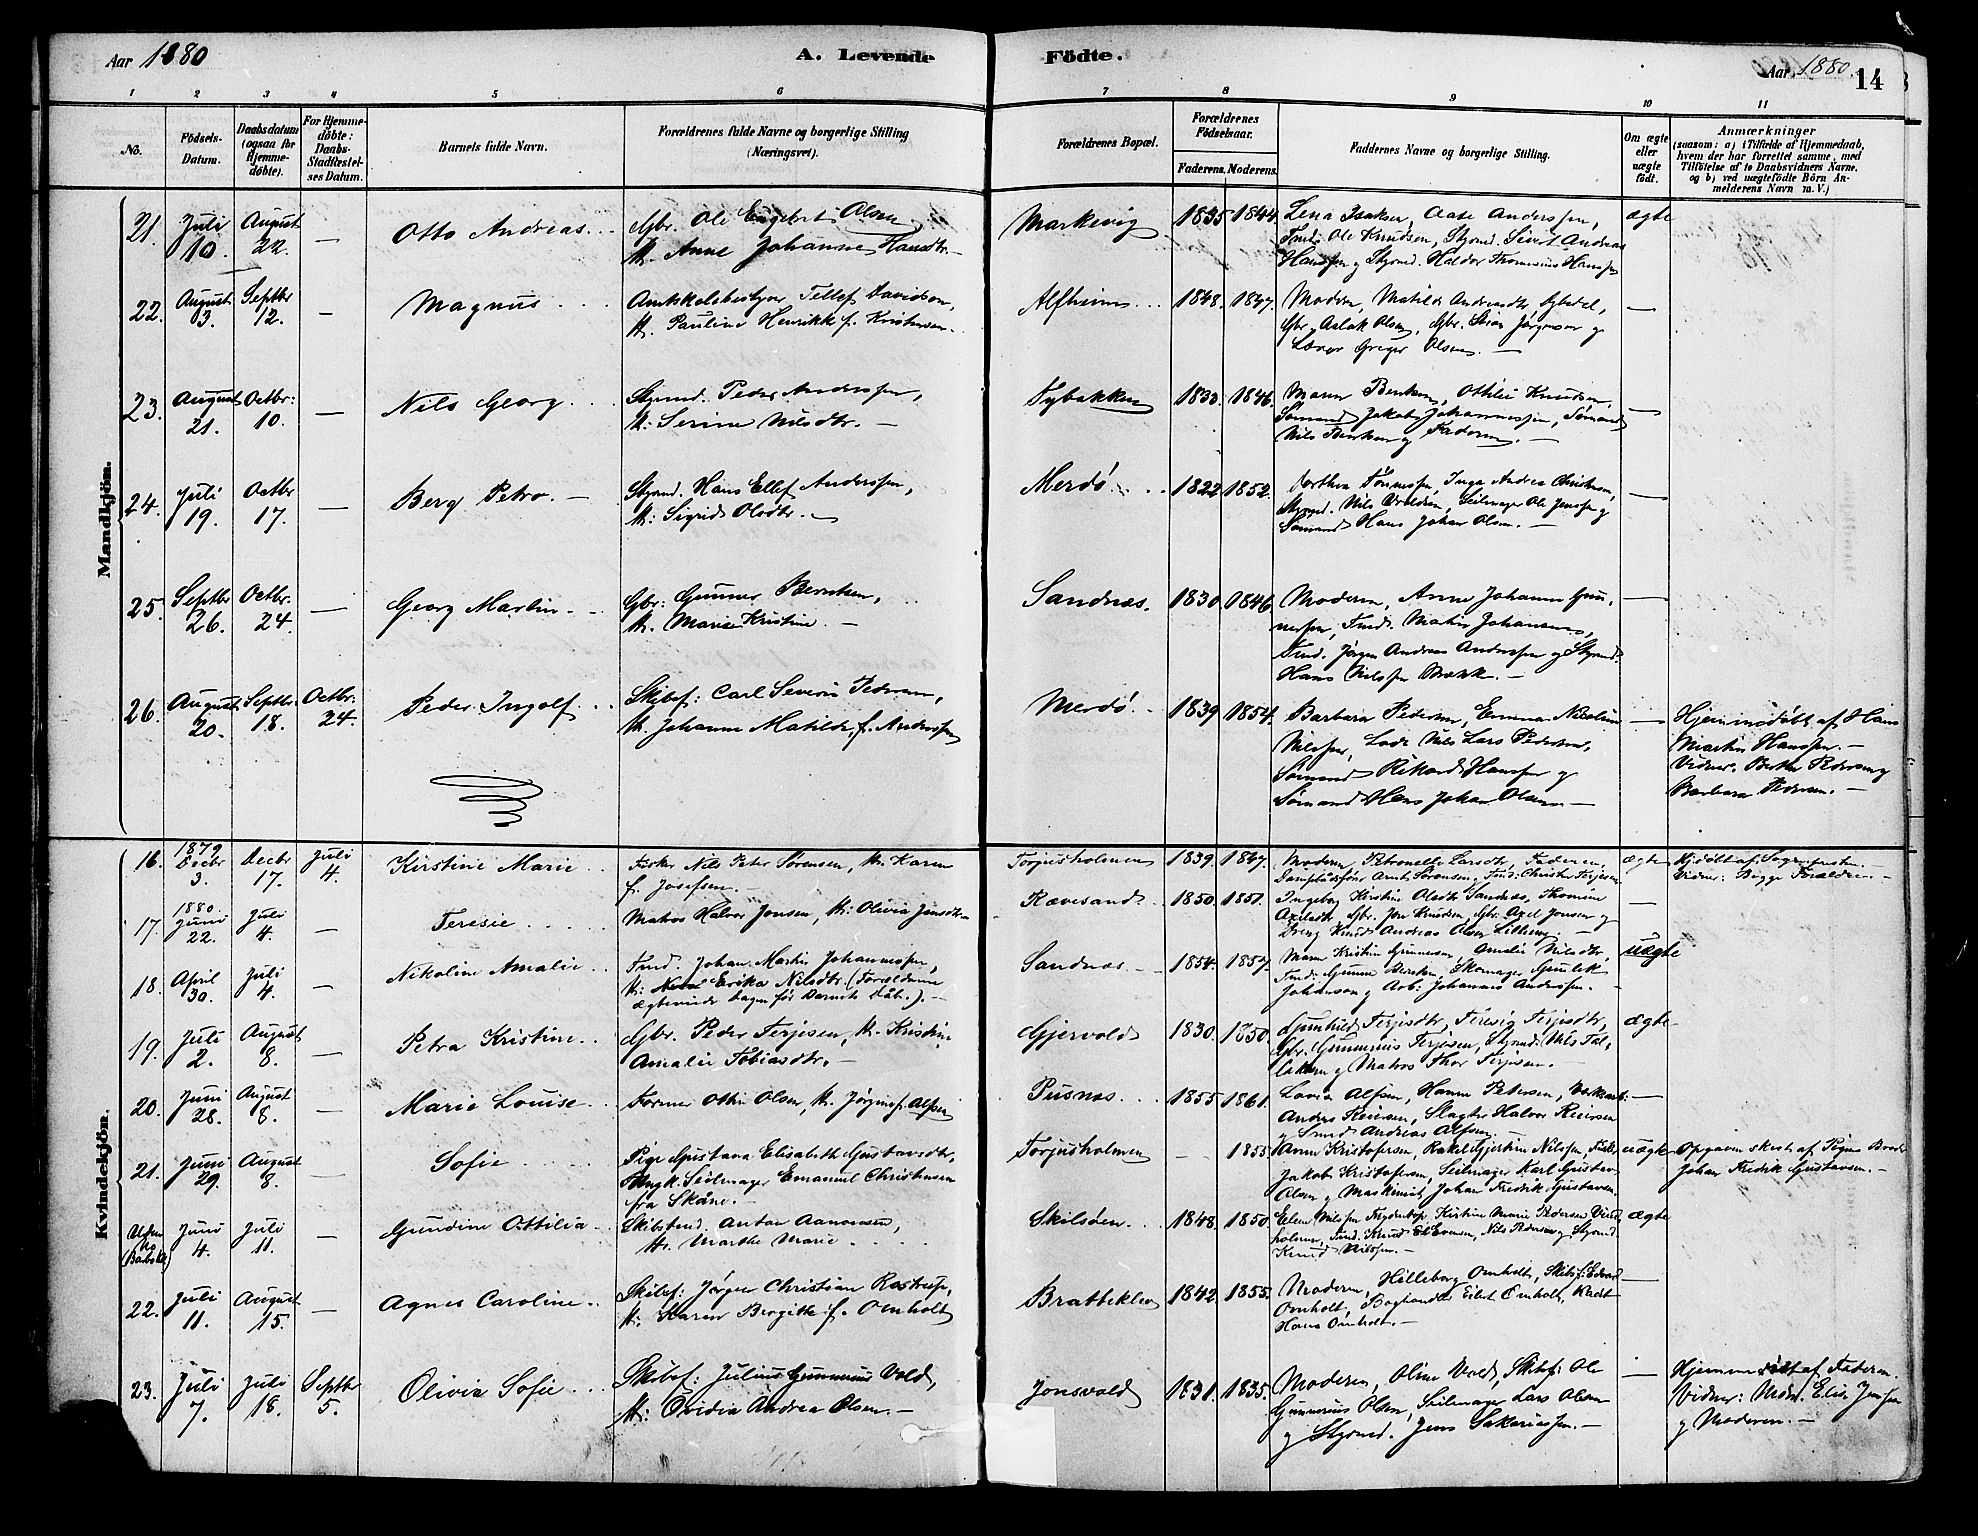 Aar 1880
A. Levende Födte.
Aar 1880.
14
1 2 3 4 5 6 7 8 9 10 11
No.
Födsels-Datum.
Daabsdatum (ogsaa for Hjemme-döbte).
For Hjemme-döbte: Daabs-Stadfæstel-ses Datum.
Barnets fulde Navn.
Forældrenes fulde Navne og borgerlige Stilling (Næringsvei).
Forældrenes Bopæl.
Forældrenes Födselsaar.
Faderens. Moderens.
Faddernes Navne og borgerlige Stilling.
Om ægte eller uægte födt.
Anmærkninger
(saasom: a) i Tilfælde af Hjemmedaab, hvem der har forrettet samme, med Tilföielse af to Daabsvidners Navne, og b) ved uægtefödte Börn Anmelderens Navn m. V.)
Mandkjön.
21. Juli 10. August 22. — Otto Andreas
Gbr. Ole Engebret Olsen
H. Anne Johanne Hansdtr. —
Markevig 1835 1844
Lena Isaksen, Aase Anderssen,
Tmd. Ole Knudsen, Stgrmd. Sivert Andreas
Hanssen og Stgrmd. Haldor Thomesius Hanssen
ægte
22. August 13. Septbr 12. — Magnus
Amtskolebestyrer Tellef Davidson,
H. Pauline Henrikke f. Kristensen.
Alfheim 1848. 1847.
Moderen, Matilde Andreasdtr,
Gbr. Aslak Olsen, Gbr. Jørgensen og
Lærer Greger Olsen. —
23. August 21. Octbr: 10. — Nils Georg
Stgrmd. Peder Anderssen,
H: Serine Nilsdtr. —
Tybakken 1833. 1846.
Maren Bentsen, Ottilie Knudsen,
Sømand Jakob Johannessen, Sømand
Nils Bentsen og Faderen. —
24. Juli 19. Octbr 17. — Berg Petro. —
Stgrmd. Hans Ellef Anderssen,
H: Sigrid Olsdtr. —
Merdö 1822 1852.
Dorthea Tönnessen, Inga Andrea Christensen,
Stgrmd. Nils, Seilmager Ole Jenssen og
Sømand Hans Johan Olsen. —
25. Septbr 26. Octbr. 24. — Georg Martin
Gbr: Gunner Berntsen,
H. Marie Kristine. —
Sandnæs. 1830. 1846
Moderen, Anne Johanne Gun-
nersen, Tmd. Martin Johansen,
Tmd. Jörgen Andreas Anderssen og Stgrmd.
Hans Nilssen Mærk. —
26. August 20. Septbr. 18. Octbr. 24. Peder Ingolf
Skibsf: Carl Severin Pedersen,
H. Johanne Matilde, f. Anderssen
Merdö 1839 1854.
Barbara Pedersen, Emma Nicoline
Nilssen, Lods Nils Lars Pedersen,
Sømand Rikard Hanssen og
Sømand Hans Johan Olsen. —
Hjemmedöbt af Hans
Martin Hanssen. —
Vidner: Berthe Pedersen og
Barbara Pedersen. —
Kvindekjön.
16. 1879 Decbr 3. Decbr 17. Juli 4. Kirstine Marie
Fisker Nils Peter Sørensen, H. Karen
f. Josefsen. —
Torjusholmen 1839. 1847.
Moderen, Petronelle Larsdtr, Faderen,
Dampbaadsförer Arnt Sørensen, Tmd: Christen Terjesen
ægte
Hjdöbt af Sogneprsten. —
Vidner: Begge Forældrene. —
17. 1880 Juni 22. Juli 4. — Teresie
Matros Halvor Jonsen, H: Olivia Jensdtr —
Rævesand 1850. 1851.
Ingeborg Kirstine Olsdtr Sandnæs, Thomine
Axelsdtr, Gbr. Jon Knudsen, Gbr. Axel Jonsen og
Dreng Knud Andreas Olsen. —
18. April 30. Juli 4. — Nikoline Amalie
Tmd. Johan Martin Johannessen,
H: Erika Nilsdtr. (Forældrene
ægteviede dagen før Barnets Daab.). —
Sandnæs 1854. 1857.
Maren Kristine Gunnersen, Amalie Nilsdtr,
Tmd. Gunner Berntsen, Skomager Gunlek
Johanson og Arb: Johannes Anderssen. —
uægte
19. Juli 2. August 8. — Petra Kristine
Gbr. Peder Terjesen, H. Kristine
Amalie Tobiasdtr. —
Gjervold 1830. 1850.
Gunhild Terjesdtr, Teresie Terjesdtr,
Gbr. Gunnerius Terjesen, Stgrmd. Nils
og Matros Thor Terjesen.
ægte
20. Juni 28. August 8. — Marie Louise
Former Ottin Olsen, H. Jörgine f. Alfsen
Pusnæs 1855 1861.
Lovise Alfsen, Hanne Petersen,
Anders Reiersen, Slagter Halvor Reiersen
og Smed Andreas Alfsen. —
21. Juni 29. August 8. — Sofie
Pige Gustava Elisabeth Gustavsdtr,
Ungk. Seilmager Emanuel Christensen
fra Skåne. —
Torjusholmen — 1855.
Anna Kristofersen, Rakel Gjertine Nilssen, Fisker
Jakob Kristofersen, Seilmager Karl Gustav
Olsen og Maskinist Johan Fredrik Gustavsen.
uægte
Opgaven skeet af Pigens Broder
Johan Fredrik Gustavsen. —
Uden No Juni 4. Juli 11. — Gundine Ottilia
Skibstmd. Anton Aanonsen,
H. Marthe Marie
Skilsøen 1848. 1850.
Elen Nilssen, Kirstine Marie Pedersen
Tmd. Knud Evensen, Nils Pedersen og Stgrmd.
Knud Nilssen. —
ægte
22. Juli 11. August 15. — Agnes Caroline
Skibsf: Jørgen Christian Rostrup,
H. Karen Birgitte f. Omholt
Bratteklev 1842. 1855.
Moderen, Hilleborg Omholt, Skibsf: Edvard
Omholt, Boghandler Eilert Omholt, Kadt
Hans Omholt. —
23. Juli 7. Juli 18. Septbr 5. Olivia Sofie
Skibsf: Julius Gunnerius Vold,
H: Ovidia Andrea Olsen. —
Jonsvold 1831. 1835.
Moderen, Oline Vold, Skibsf: Ole
Gunnerius Olsen, Seilmager Lars Olsen
og Stgrmd. Jens Sakariassen. —
Hjemmedöbt af Faderen.
Vidner: Elise Jenssen
og Moderen. —